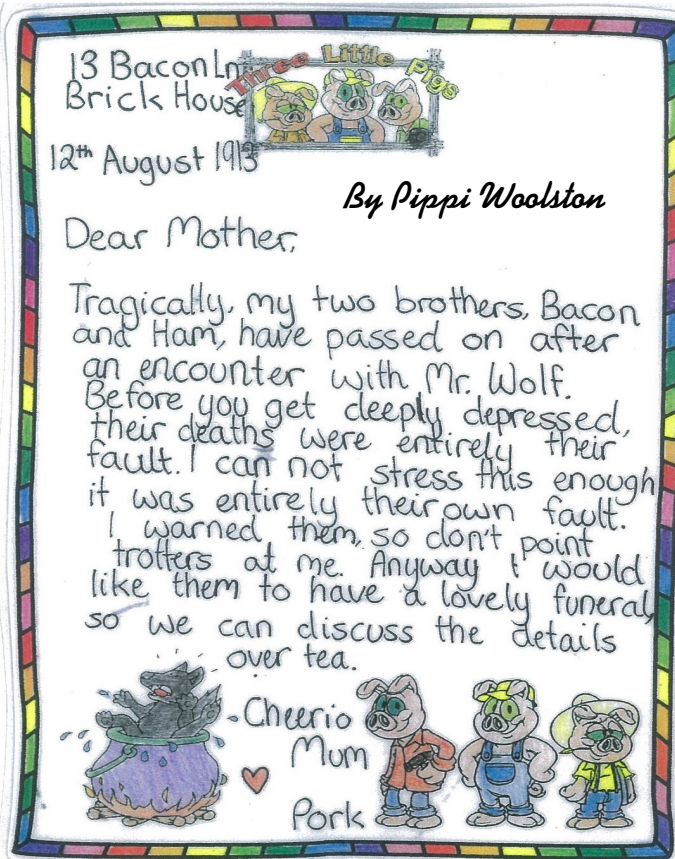 13 Bacon Ln
Three Little Pigs
Brick House
12th August 1913
By Pippi Woolston
Dear Mother,
Tragically, my two brothers, Bacon
and Ham, have passed on after
an encounter with Mr. Wolf.
Before you get deeply depressed,
their deaths were entirely their
fault. I can not stress this enough
it was entirely their own fault.
I warned them, so don't point
trotters at me. Anyway I would
like them to have a lovely funeral,
so we can discuss the details
over tea.
Cheerio
Mum
Pork